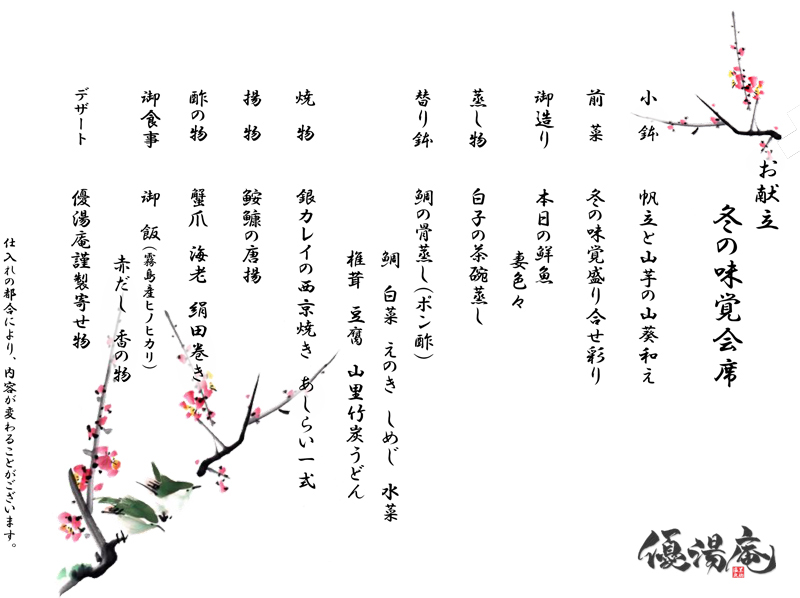 お献立
冬の味覚会席
小鉢　帆立と山芋の山葵和え
前菜　冬の味覚盛り合せ彩り
御造り　本日の鮮魚
妻色々
蒸し物　白子の茶碗蒸し
替り鉢　鯛の骨蒸し(ポン酢)
鯛　白菜　えのき　しめじ　水菜
椎茸　豆腐　山里竹炭うどん
焼物　銀カレイの西京焼き　あしらい一式
揚物　鮟鱇の唐揚
酢の物　蟹爪　海老　絹田巻き
御食事　御飯(霧島産ヒノヒカリ)
赤だし　香の物
デザート　優湯庵謹製寄せ物
仕入れの都合により、内容が変わることがございます。
優湯庵